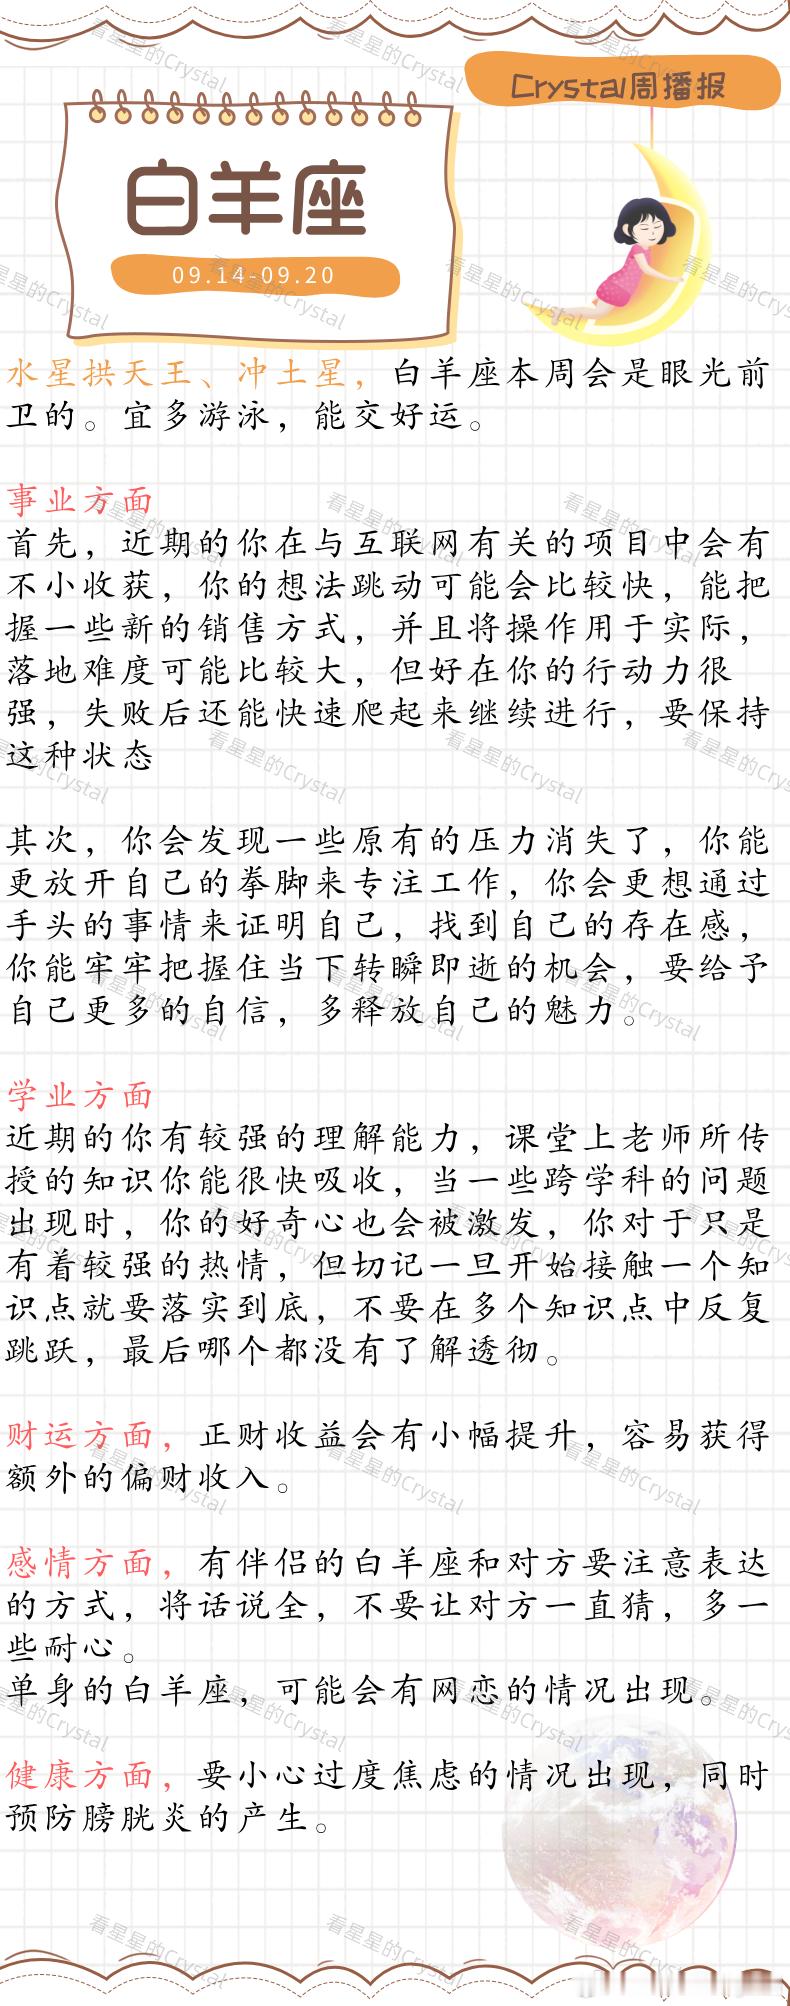 Crystal周播报
白羊座
09.14-09.20
水星拱天王、冲土星，白羊座本周会是眼光前
卫的。宜多游泳，能交好运。
事业方面
首先，近期的你在与互联网有关的项目中会有
不小收获，你的想法跳动可能会比较快，能把
握一些新的销售方式，并且将操作用于实际，
落地难度可能比较大，但好在你的行动力很
强，失败后还能快速爬起来继续进行，要保持
这种状态
其次，你会发现一些原有的压力消失了，你能
更放开自己的拳脚来专注工作，你会更想通过
手头的事情来证明自己，找到自己的存在感，
你能牢牢把握住当下转瞬即逝的机会，要给予
自己更多的自信，多释放自己的魅力。
学业方面
近期的你有较强的理解能力，课堂上老师所传
授的知识你能很快吸收，当一些跨学科的问题
出现时，你的好奇心也会被激发，你对于只是
有着较强的热情，但切记一旦开始接触一个知
识点就要落实到底，不要在多个知识点中反复
跳跃，最后哪个都没有了解透彻。
财运方面，正财收益会有小幅提升，容易获得
额外的偏财收入。
感情方面，有伴侣的白羊座和对方要注意表达
的方式，将话说全，不要让对方一直猜，多一
些耐心。
单身的白羊座，可能会有网恋的情况出现。
健康方面，要小心过度焦虑的情况出现，同时
预防膀胱炎的产生。
看星星的Crystal